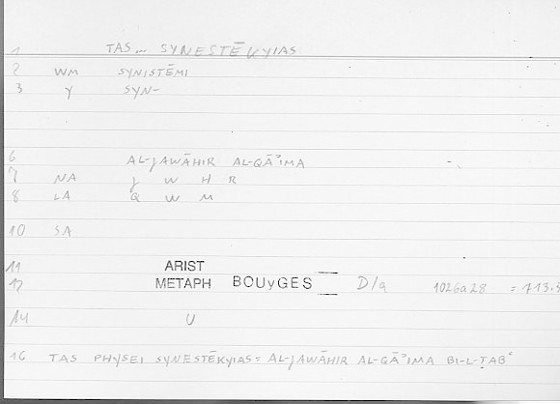 1 TAS ... SYNESTĒKYIAS
2 WM SYNISTĒMI
3 Y SYN-
6 AL-JAWĀHIR AL-QĀʾIMA
7 NA J W H R
8 LA Q W M
10 SA
11 ARIST
12 METAPH BOUyGES D/q 1026a28 = 713.5
14 U
16 TAS PHYSEI SYNESTĒKYIAS = AL-JAWĀHIR AL-QĀʾIMA BI-L-ṬABʿ